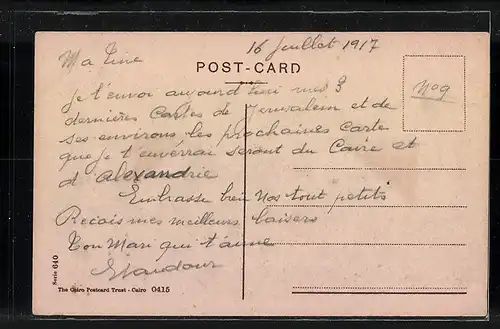 16 juillet 1917
Ma Line
POST-CARD
No 9
Je t'envoi aujourd hui mes 3
dernières Cartes de Jerusalem et de
ses environs, les prochaines carte
que je t'enverrai seront du Caire et
d'Alexandrie
Embrasse bien nos tout petits
Recois mes meilleurs baisers
Ton Mari qui t'aime
Serie 640
The Cairo Postcard Trust - Cairo 0415